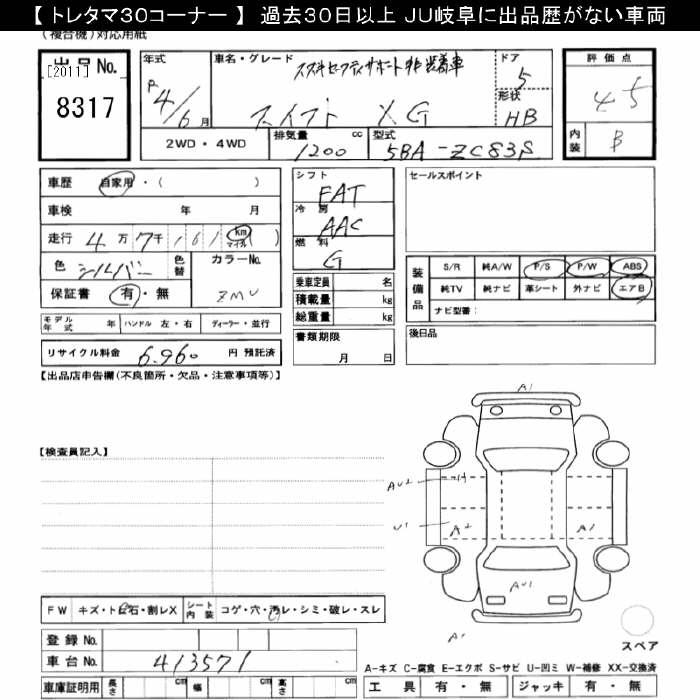 【 トレタマ30コーナー 】 過去30日以上 JU岐阜に出品歴がない車両
(複合機)対応用紙
出品No.
[2011]
8317
年式
R 4/6 月
車名・グレード
スズキセーフティサポート非装着車
スイフト XG
ドア
5
形状
HB
評価点
4.5
内装
B
2WD・4WD
排気量 cc
1200
型式
5BA-ZC83S
車歴 自家用・( )
車検 年 月
走行 4万7千161 km マイル ( )
色 シルバー 色替
カラーNo.
ZMU
保証書 有・無
モデル年式 年 ハンドル 左・右 ディーラー・並行
リサイクル料金 6,960 円 預託済
シフト
FAT
冷房
AAC
燃料
G
乗車定員 名
積載量 kg
総重量 kg
書類期限
月 日
セールスポイント
装備品
S/R 純A/W P/S P/W ABS
純TV 純ナビ 革シート 外ナビ エアB
ナビ型番:
後日品
【出品店申告欄(不良箇所・欠品・注意事項等)】
【検査員記入】
A1
AU2
U1
A2
A1
AU1
A1
スペア
FW キズ・ト石・割レX シート内装 コゲ・穴・汚レ・シミ・破レ・スレ
登録No.
車台No. 413571
車庫証明用 長さ cm 幅 cm 高さ cm
A-キズ C-腐食 E-エクボ S-サビ U-凹ミ W-補修 XX-交換済
工具 有・無 ジャッキ 有・無